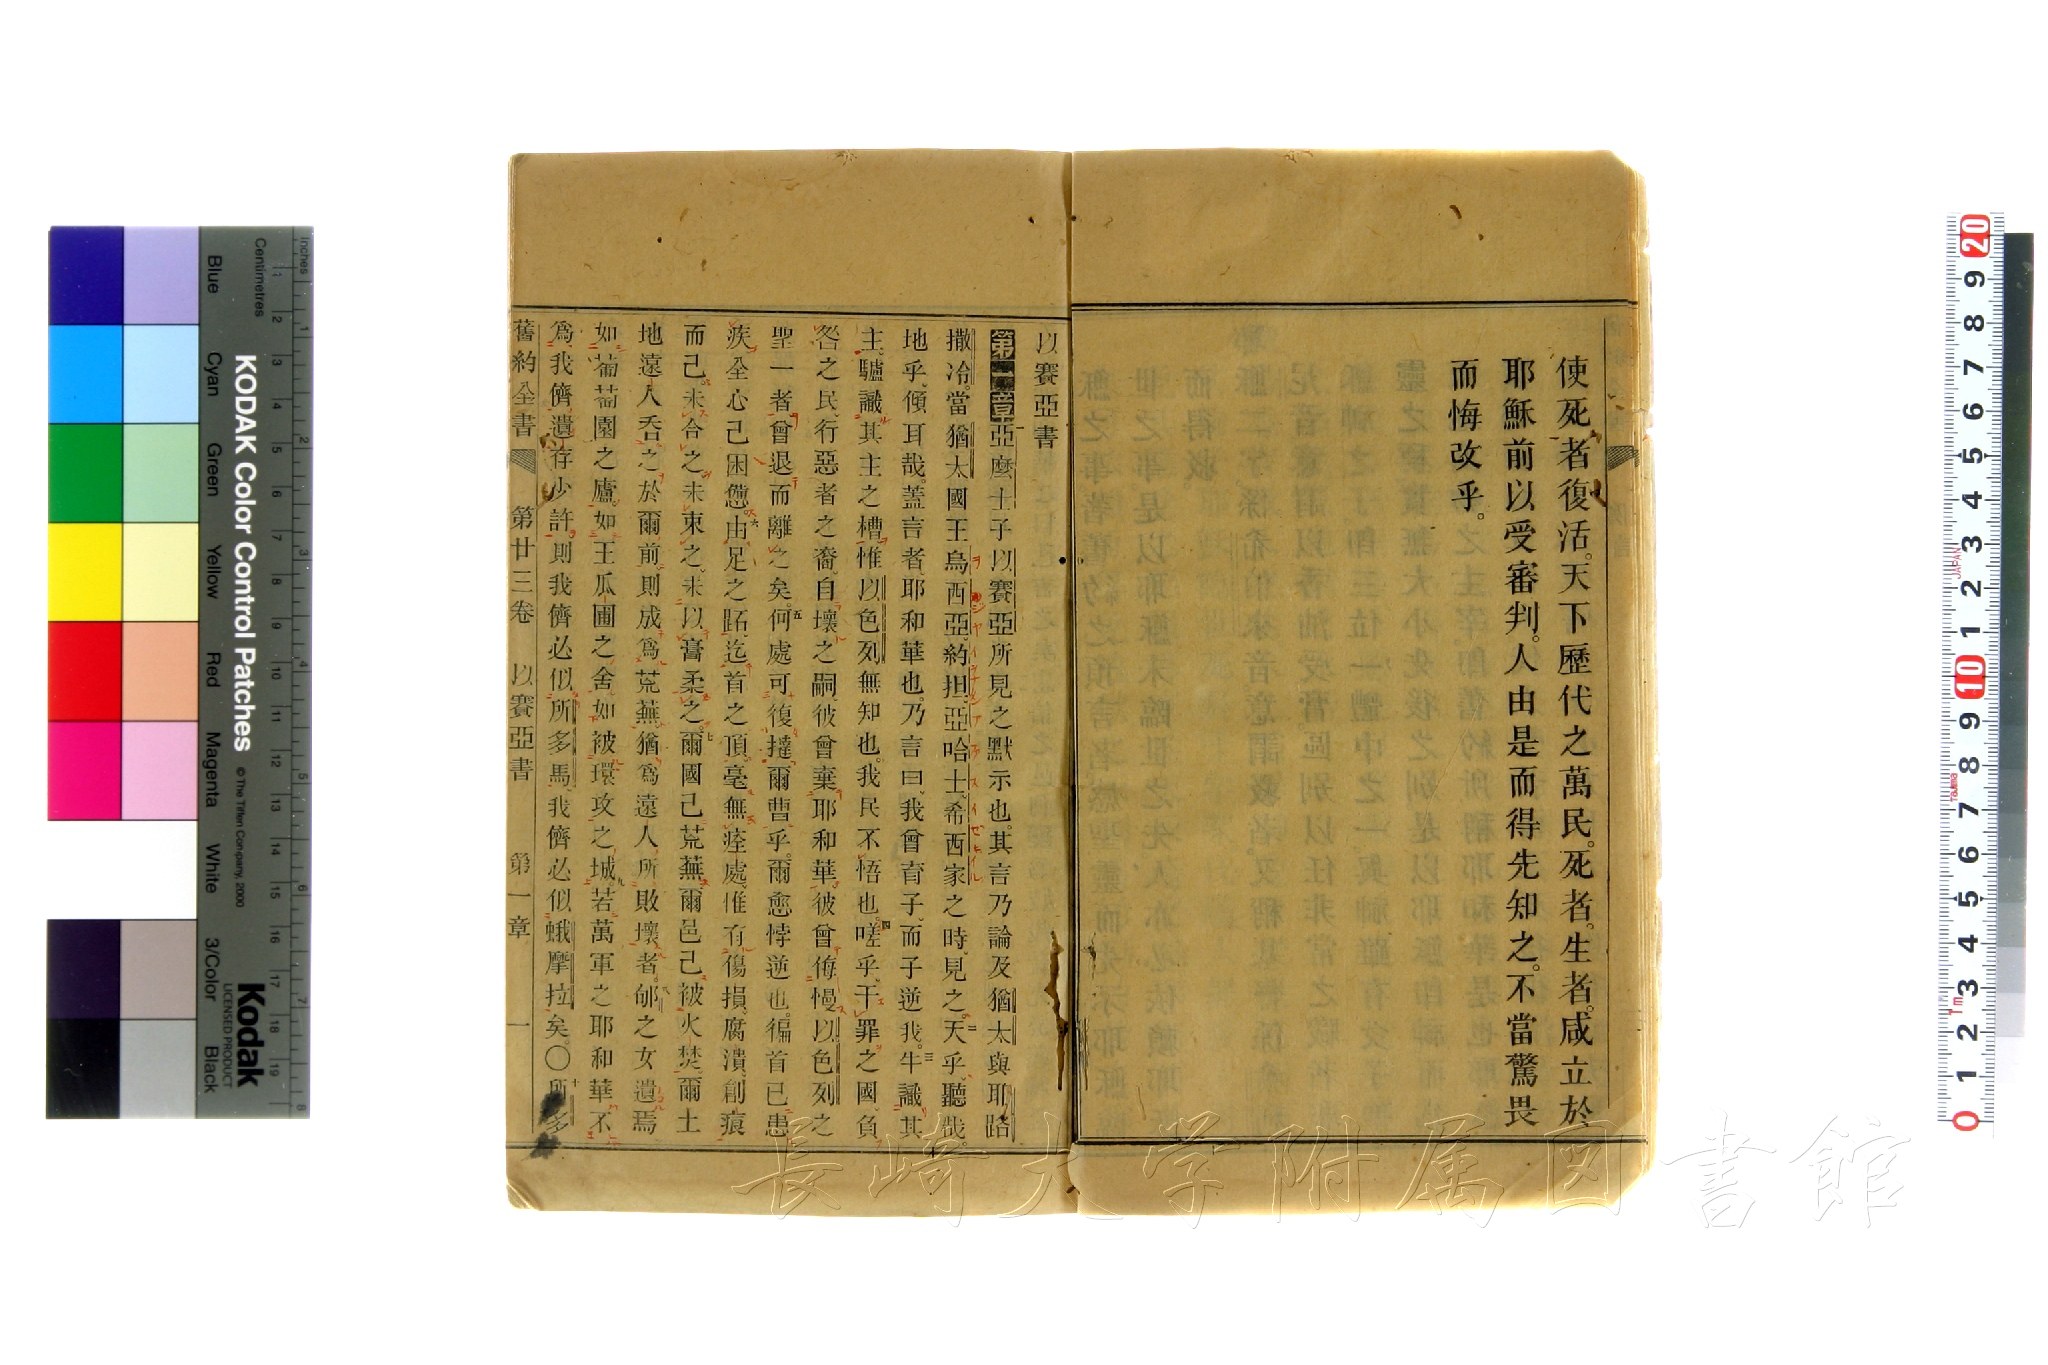 使死者復活。天下歷代之萬民。死者。生者。咸立於
耶穌前以受審判。人由是而得先知之。不當驚畏
而悔改乎。
以賽亞書
第一章亞麼士子以賽亞所見之默示也。其言乃論及猶太與耶路
撒冷。當猶太國王烏西亞。約担。亞哈士。希西家之時。見之。二天乎。聽哉。
地乎。傾耳哉。蓋言者耶和華也。乃言曰。我曾育子。而子逆我。三牛識其
主。驢識其主之槽。惟以色列無知也。我民不悟也。四嗟乎。干罪之國。負
咎之民。行惡者之裔。自壞之嗣。彼曾棄耶和華。彼曾侮慢以色列之
聖一者。曾退而離之矣。五何處可復撻爾曹乎。爾愈悖逆也。徧首已患
疾。全心己困憊。六由足之跖。迄首之頂。毫無痊處。惟有傷損。腐潰。創痕
而己。未合之。未束之。未以膏柔之。七爾國己荒蕪。爾邑己被火焚。爾土
地遠人吞之於爾前。則成爲荒蕪。猶爲遠人所敗壞者。八郇之女遺焉
如葡萄園之廬。如王瓜圃之舍。如被環攻之城。九若萬軍之耶和華不
爲我儕遺存少許。則我儕必似所多馬。我儕必似蛾摩拉矣。〇十所多
舊約全書 第廿三卷 以賽亞書 第一章 一
長崎大学附属図書館
KODAK Color Control Patches
© The Tiffen Company, 2000
Kodak
LICENSED PRODUCT
Inches
Centimetres
Blue
Cyan
Green
Yellow
Red
Magenta
White
3/Color
Black
JAPAN
Tajima
1m